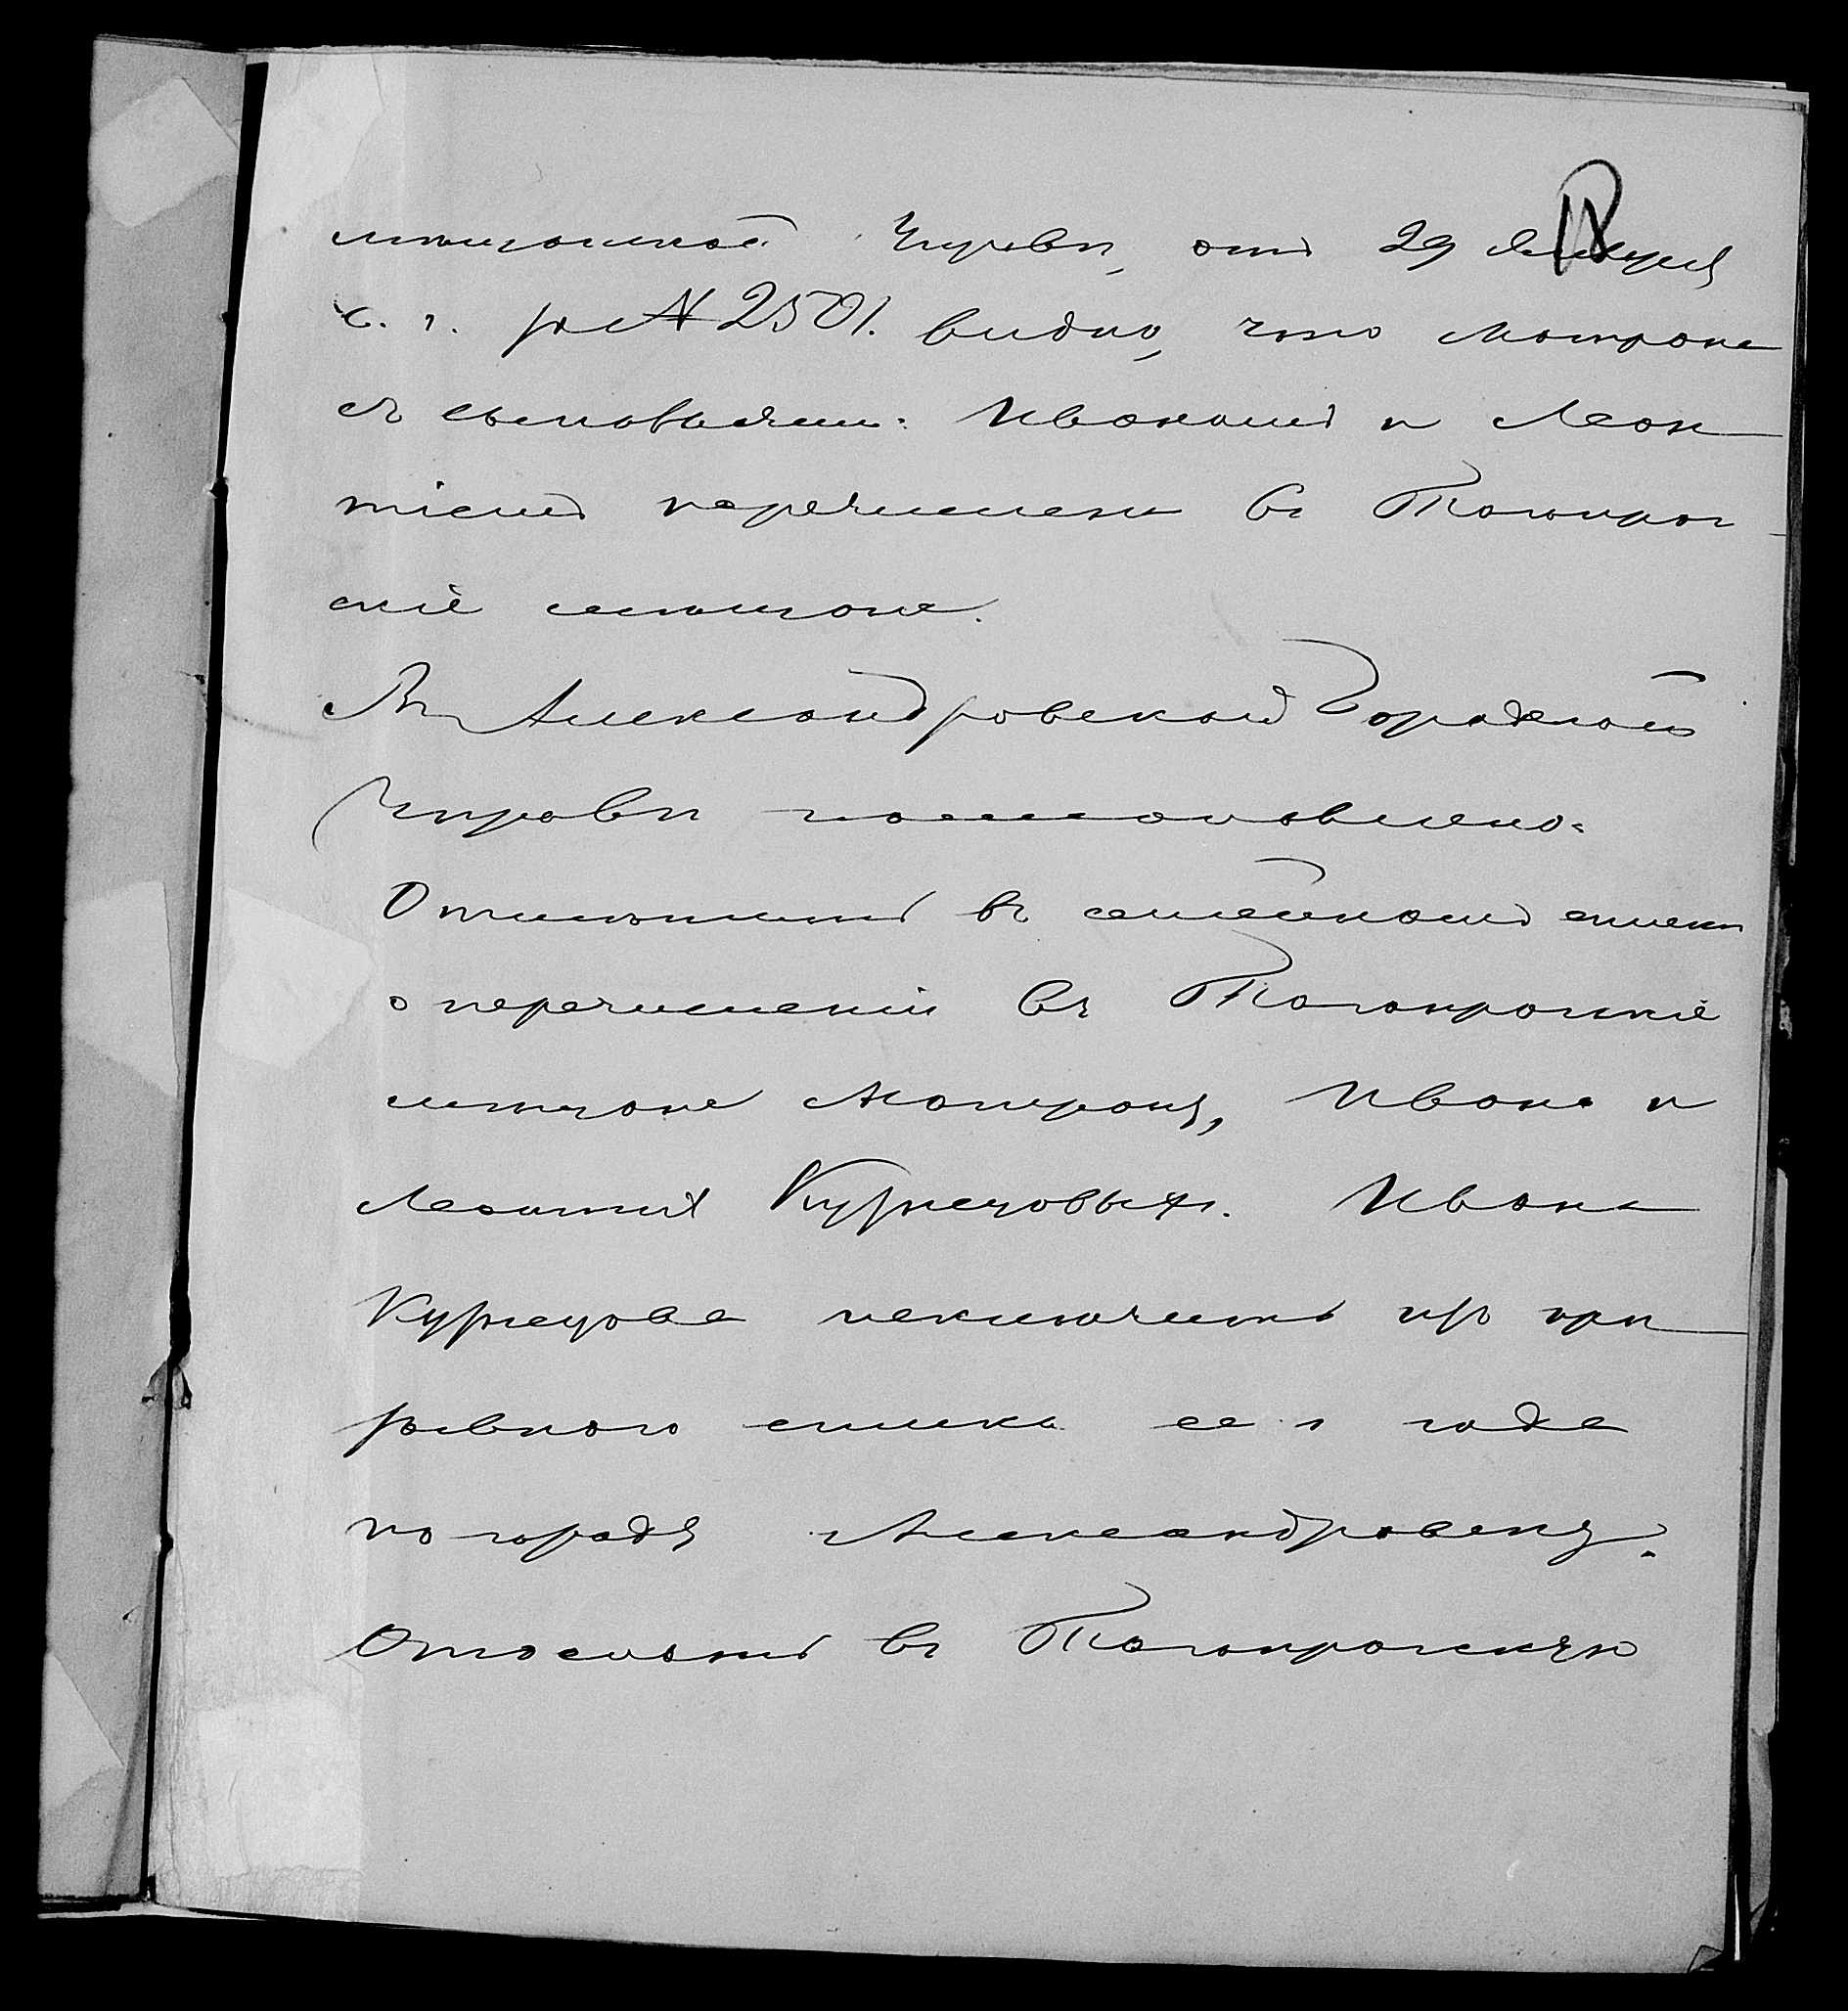 мѣщанской Управы, отъ 29 Января
с. г. за № 2501. видно, что Матрона
съ сыновьями: Иваномъ и Леон
тіемъ перечислены въ Таганрог
скіе мѣщане.
Въ Александровской Городской
Управѣ постановлено:
Отмѣтить въ семейномъ списке
о перечисленіи въ Таганрогскіе
мѣщане Матрону, Ивана и
Леонтія Кузнецовыхъ. Ивана
Кузнецова исключить изъ при
зывного списка сего года
по городу Александровску.
Отослать въ Таганрогскую